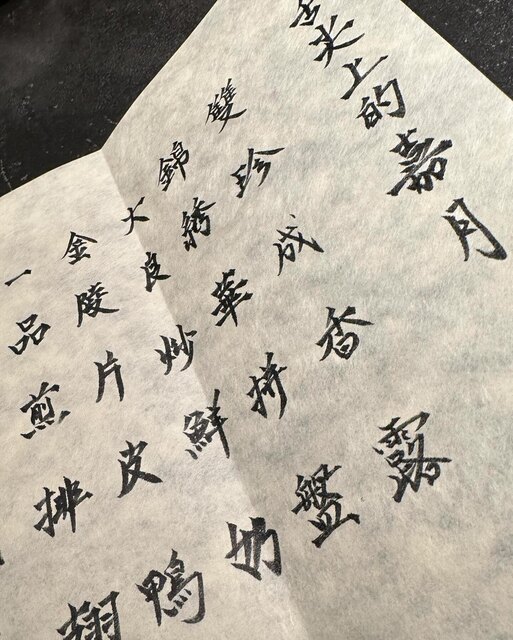 舌尖上的嘉月
雙珍成香露
錦綉華拼盤
大良炒鮮奶
金陵片皮鴨
一品煎排翅